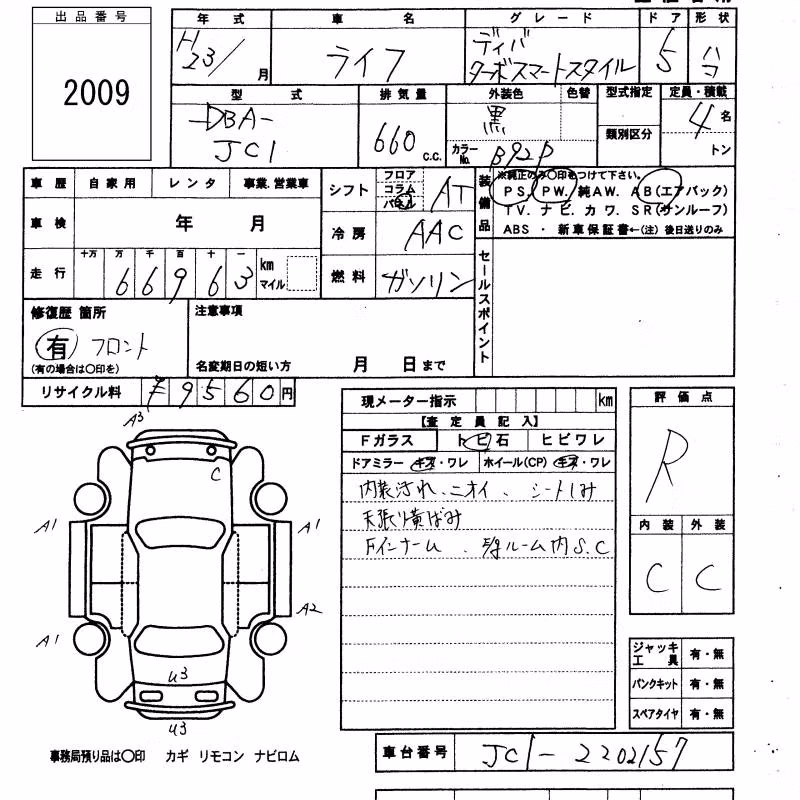 出品番号
2009
年式 車名 グレード ドア 形状
H23/ 月 ライフ ディバ ターボスマートスタイル 5 ハコ
型式 排気量 外装色 色替 型式指定 定員・積載
DBA-
JC1
660 c.c.
黒
カラーNo. B92P
類別区分
4 名
トン
車歴 自家用 レンタ 事業.営業車
シフト フロア コラム パネル AT
装備品
※純正のみ〇印をつけて下さい。
PS. PW. 純AW. AB(エアバック)
TV. ナビ. カワ. SR(サンルーフ)
ABS ・ 新車保証書←(注) 後日送りのみ
車検 年 月
冷房 AAC
走行 十万 万 千 百 十 一
66963 km マイル
燃料 ガソリン
セールスポイント
修復歴 箇所
有 フロント
(有の場合は〇印を)
注意事項
名変期日の短い方 月 日まで
リサイクル料 ¥9560円
現メーター指示 km
【査定員記入】
Fガラス トビ石 ヒビワレ
ドアミラー キズ・ワレ ホイール(CP) キズ・ワレ
内装汚れ、ニオイ、シートしみ
天張り黄ばみ
Fインナー ルーム内S.C
評価点
R
内装 外装
C C
A3
C
A1 A1
A1 A2
U3
U3
ジャッキ工具 有・無
パンクキット 有・無
スペアタイヤ 有・無
事務局預り品は〇印 カギ リモコン ナビロム
車台番号 JC1-2202157